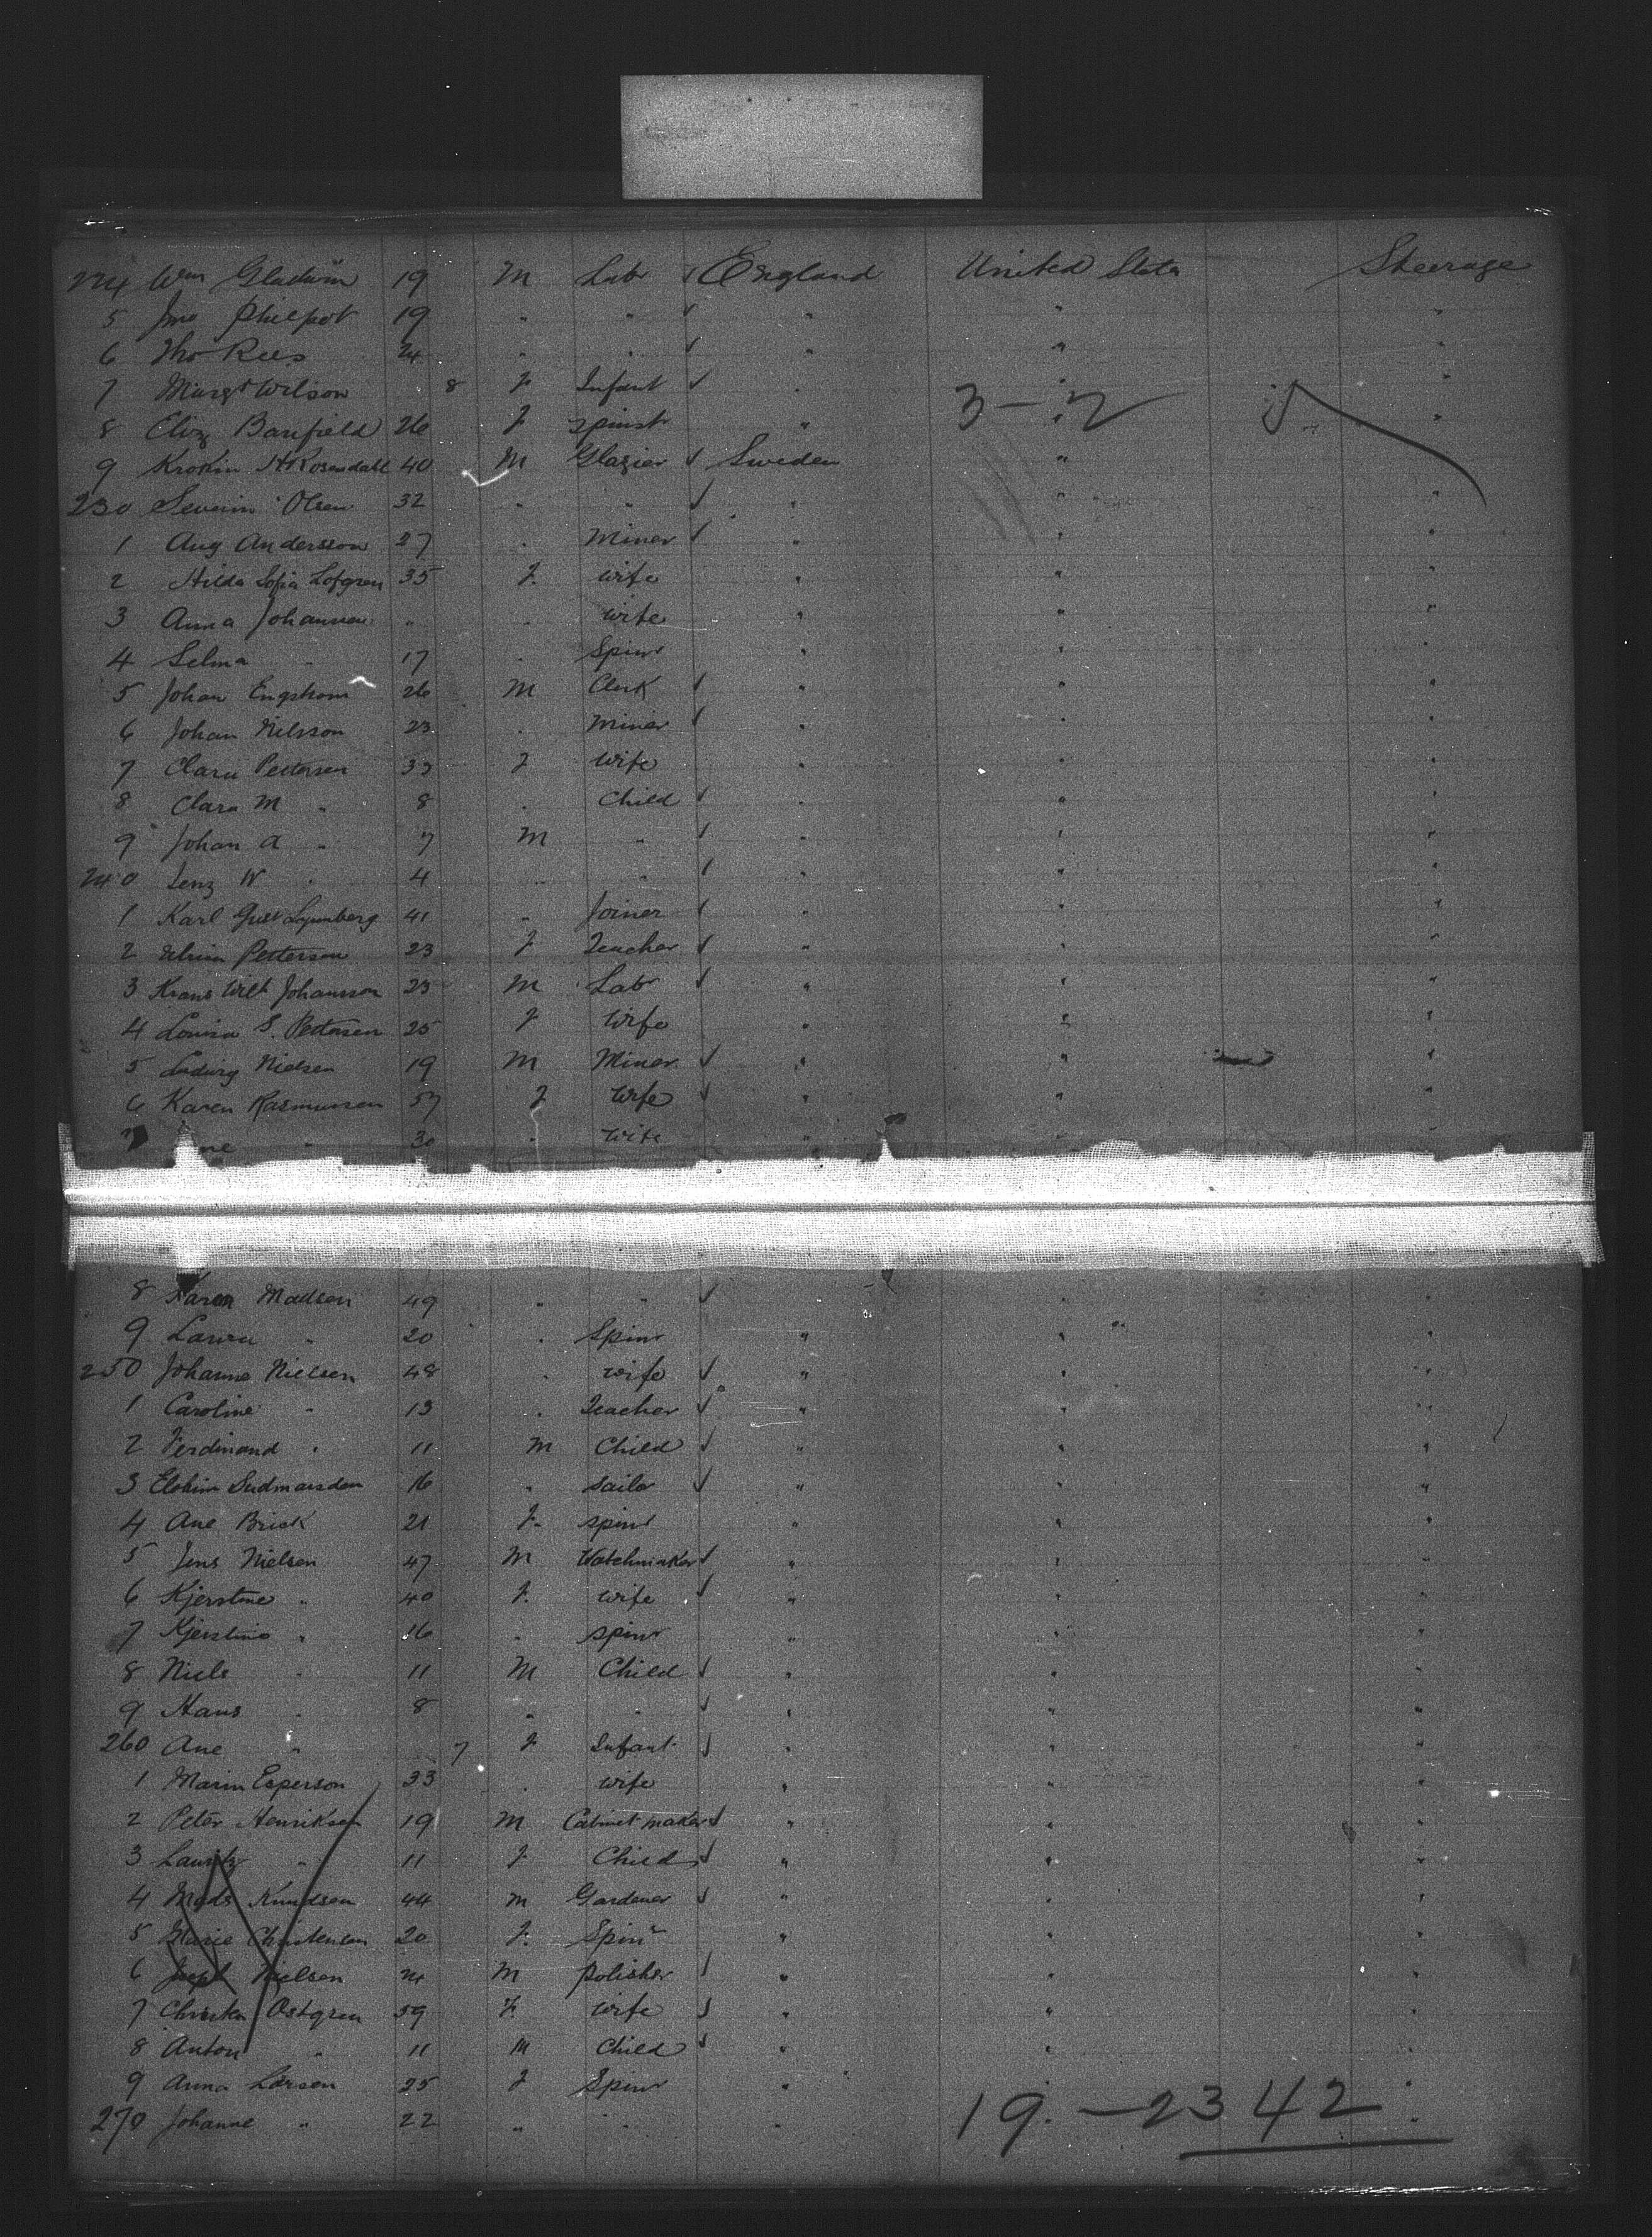 224 Wm Gladwin 19 M Lab ✓ England United States Steerage
5 Jno Philpot 19 " " ✓ " " "
6 Tho Rees 24 " " ✓ " " "
7 Margt Wilson 8 F Infant ✓ " " "
8 Eliz Banfield 26 F Spinstr " " "
3 – 2 5
9 H Rosendahl 40 M Glazier ✓ Sweden " "
230 Severin Olsen 32 " " ✓ " " "
1 Aug Andersson 27 " Miner ✓ " " "
2 Hilda Sofia Lofgren 35 F. Wife " " "
3 Anna Johannsen " " Wife " " "
4 Selma " 17 " Spinr " " "
5 Johan Engstrom 26 M Clerk ✓ " " "
6 Johan Nilsson 23 " Miner ✓ " " "
7 Clara Pettersen 33 F Wife " " "
8 Clara M " 8 " Child ✓ " " "
9 Johan A " 7 M " ✓ " " "
240 W " 4 " " ✓ " " "
1 Karl Gust 41 " Joiner ✓ " " "
2 Petterson 23 F Teacher ✓ " " "
3 Johansson 23 M Lab ✓ " " "
4 Louisa S. Pettersen 25 F Wife " " "
5 Ludwig Nielsen 19 M Miner ✓ " " "
6 Karen Rasmussen 57 F Wife ✓ " " "
7 " 30 " Wife " " "
8 Karen Madsen 49 " " ✓ " "
9 Laura " 20 " Spinr " " "
250 Johanne Nielsen 48 " Wife ✓ " " "
1 Caroline " 13 " Teacher ✓ " " "
2 Ferdinand " 11 M Child ✓ " " "
3 16 " Sailor ✓ " " "
4 Ane Brick 21 F. Spinr " " "
5 Jens Nielsen 47 M Watchmaker ✓ " " "
6 Kjerstine " 40 F. Wife ✓ " " "
7 Kjerstine " 16 " Spinr " " "
8 Niels " 11 M Child ✓ " " "
9 Hans " 8 " " ✓ " " "
260 Ane " 7 F Infant ✓ " " "
1 Maria Esperson 33 " Wife " " "
2 Peter Henriksen 19 M Cabinet maker ✓ " " "
3 Lauritz " 11 F Child ✓ " " "
4 Mads Knudsen 44 M Gardener ✓ " " "
5 Marie Christensen 20 F. Spinr " " "
6 Nielsen 24 M Polisher ✓ " " "
7 Ostgren 39 F. Wife ✓ " " "
8 Anton " 11 M Child ✓ " " "
9 Anna Larsen 25 F Spinr " " "
270 Johanne " 22 " " " "
19. – 23 42